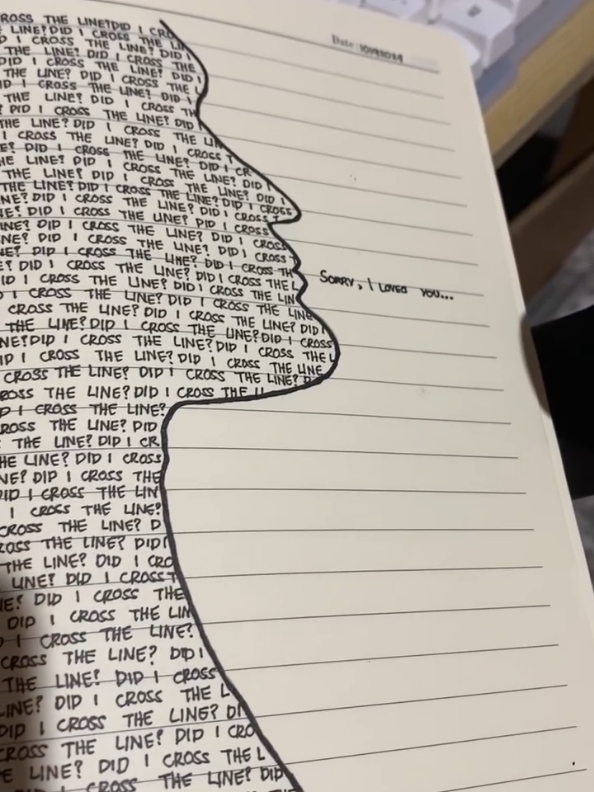 Date:
ROSS THE LINE? DID I CRO
LINE? DID I CROSS THE LI
D I CROSS THE LINE? DID
THE LINE? DID I CROSS THE
DID I CROSS THE LINE? DID I
THE LINE? DID I CROSS THE L
D I CROSS THE LINE? DID I
THE LINE? DID I CROSS TH
DID I CROSS THE LINE? DID I
THE LINE? DID I CROSS THE LIN
I CROSS THE LINE? DID I CROSS T
E? DID I CROSS THE LINE? DID I CR
HE LINE? DID I CROSS THE LINE? DID I
THE LINE? DID I CROSS THE LINE? DID I
THE LINE? DID I CROSS THE LINE? DID I CROSS
NE? DID I CROSS THE LINE? DID I CROSS T
NE? DID I CROSS THE LINE? DID I CROSS
INE? DID I CROSS THE LINE? DID I CROSS
NE? DID I CROSS THE LINE? DID I CROSS TH
NE? DID I CROSS THE LINE? DID I CROSS TH
E? DID I CROSS THE LINE? DID I CROSS THE L
ID I CROSS THE LINE? DID I CROSS THE LIN
Sorry, I loved you...
I CROSS THE LINE? DID I CROSS THE LINE
CROSS THE LINE? DID I CROSS THE LINE? DID I
THE LINE? DID I CROSS THE LINE? DID I CROSS
NE? DID I CROSS THE LINE? DID I CROSS THE L
ID I CROSS THE LINE? DID I CROSS THE LINE
CROSS THE LINE? DID I CROSS THE LINE? D
OSS THE LINE? DID I CROSS THE LI
D I CROSS THE LINE?
ROSS THE LINE? DID
THE LINE? DID I CR
HE LINE? DID I CROSS
NE? DID I CROSS THE
DID I CROSS THE LIN
I CROSS THE LINE?
CROSS THE LINE? D
ROSS THE LINE? DID I
THE LINE? DID I CRO
LINE? DID I CROSS T
NE? DID I CROSS THE
DID I CROSS THE LIN
D I CROSS THE LINE?
CROSS THE LINE? DID I
THE LINE? DID I CROSS
LINE? DID I CROSS THE L
DID I CROSS THE LINE? DI
CROSS THE LINE? DID I CRO
E LINE? DID I CROSS THE L
CROSS THE LINE? DID